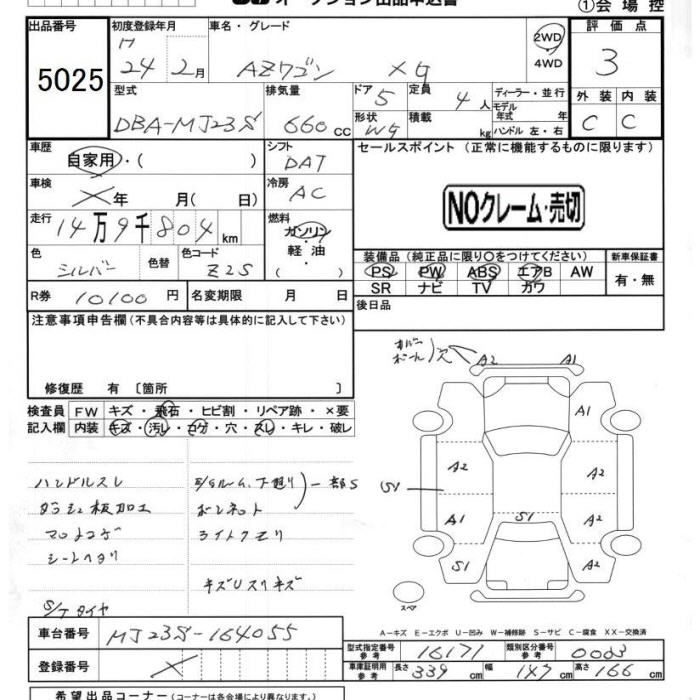 ①会場控
出品番号 初度登録年月 車名・グレード 2WD 評価点
5025 H 24 2月 AZワゴン XG 4WD 3
型式 排気量 ドア 定員 ディーラー・並行 外装 内装
DBA-MJ23S 660cc 5 4人 モデル年式 年 C C
形状 積載 kg ハンドル 左・右
車歴 シフト セールスポイント (正常に機能するものに限ります)
自家用・( ) DAT
車検 冷房
年 月( 日) AC NOクレーム・売切
走行 燃料
14万9千804km ガソリン・軽油・( )
色 色替 色コード 装備品(純正品に限り○をつけてください) 新車保証書
シルバー Z2S PS PW ABS エアB AW 有・無
SR ナビ TV カワ
R券 10100円 名変期限 月 日 後日品
注意事項申告欄(不具合内容等は具体的に記入して下さい)
穴 A2 A1
修復歴 有 〔箇所 〕
検査員 FW キズ・飛石・ヒビ割・リペア跡・×要 A1
記入欄 内装 キズ・汚レ・コゲ・穴・スレ・キレ・破レ
ハンドルスレ 下廻り 一部S A2 A2
ダッシュ板加工 ボンネット S1
マットコゲ ライトクモリ A1 S1 A2
シートヘタリ
S1 A2
キズUスリキズ
S/Tタイヤ スペア
A-キズ E-エクボ U-凹み W-補修跡 S-サビ C-腐食 XX-交換済
車台番号 MJ23S-164055
型式指定番号 参考 16171 類別区分番号 参考 0003
登録番号
車庫証明用 参考 長さ 339cm 幅 147cm 高さ 166cm
希望出品コーナー(各会場により異なります。)